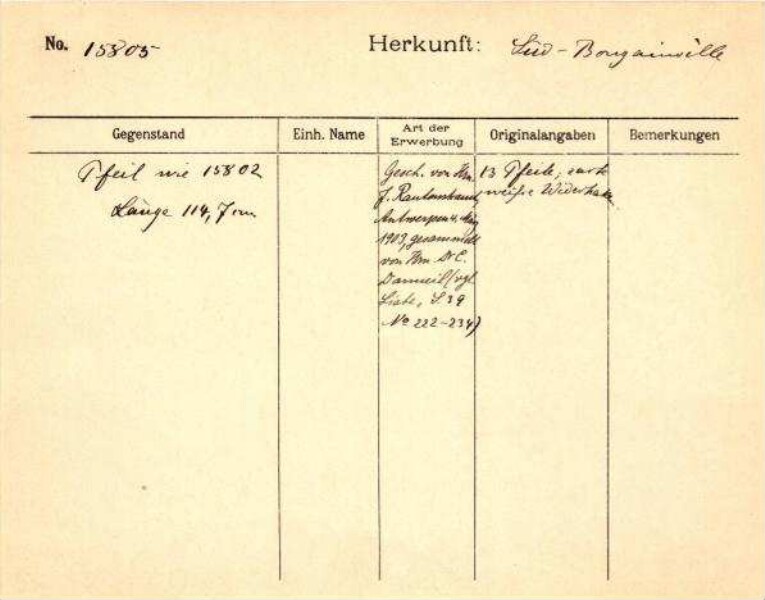 No. 15805 Herkunft: Süd-Bougainville
Gegenstand Einh. Name Art der Erwerbung Originalangaben Bemerkungen
Pfeil wie 15802
Länge 114,7 cm
Gesch. von Hrn.
J. Rautenstrauch,
Antwerpen 4. Mai
1909, gesammelt
von Hrn. Dr C.
Danneil (vgl.
Liste, S. 39
No 222-234)
13 Pfeile,
weiße Widerhaken